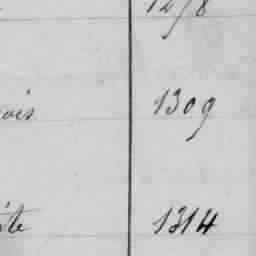 1278
ois 1309
ite 1314